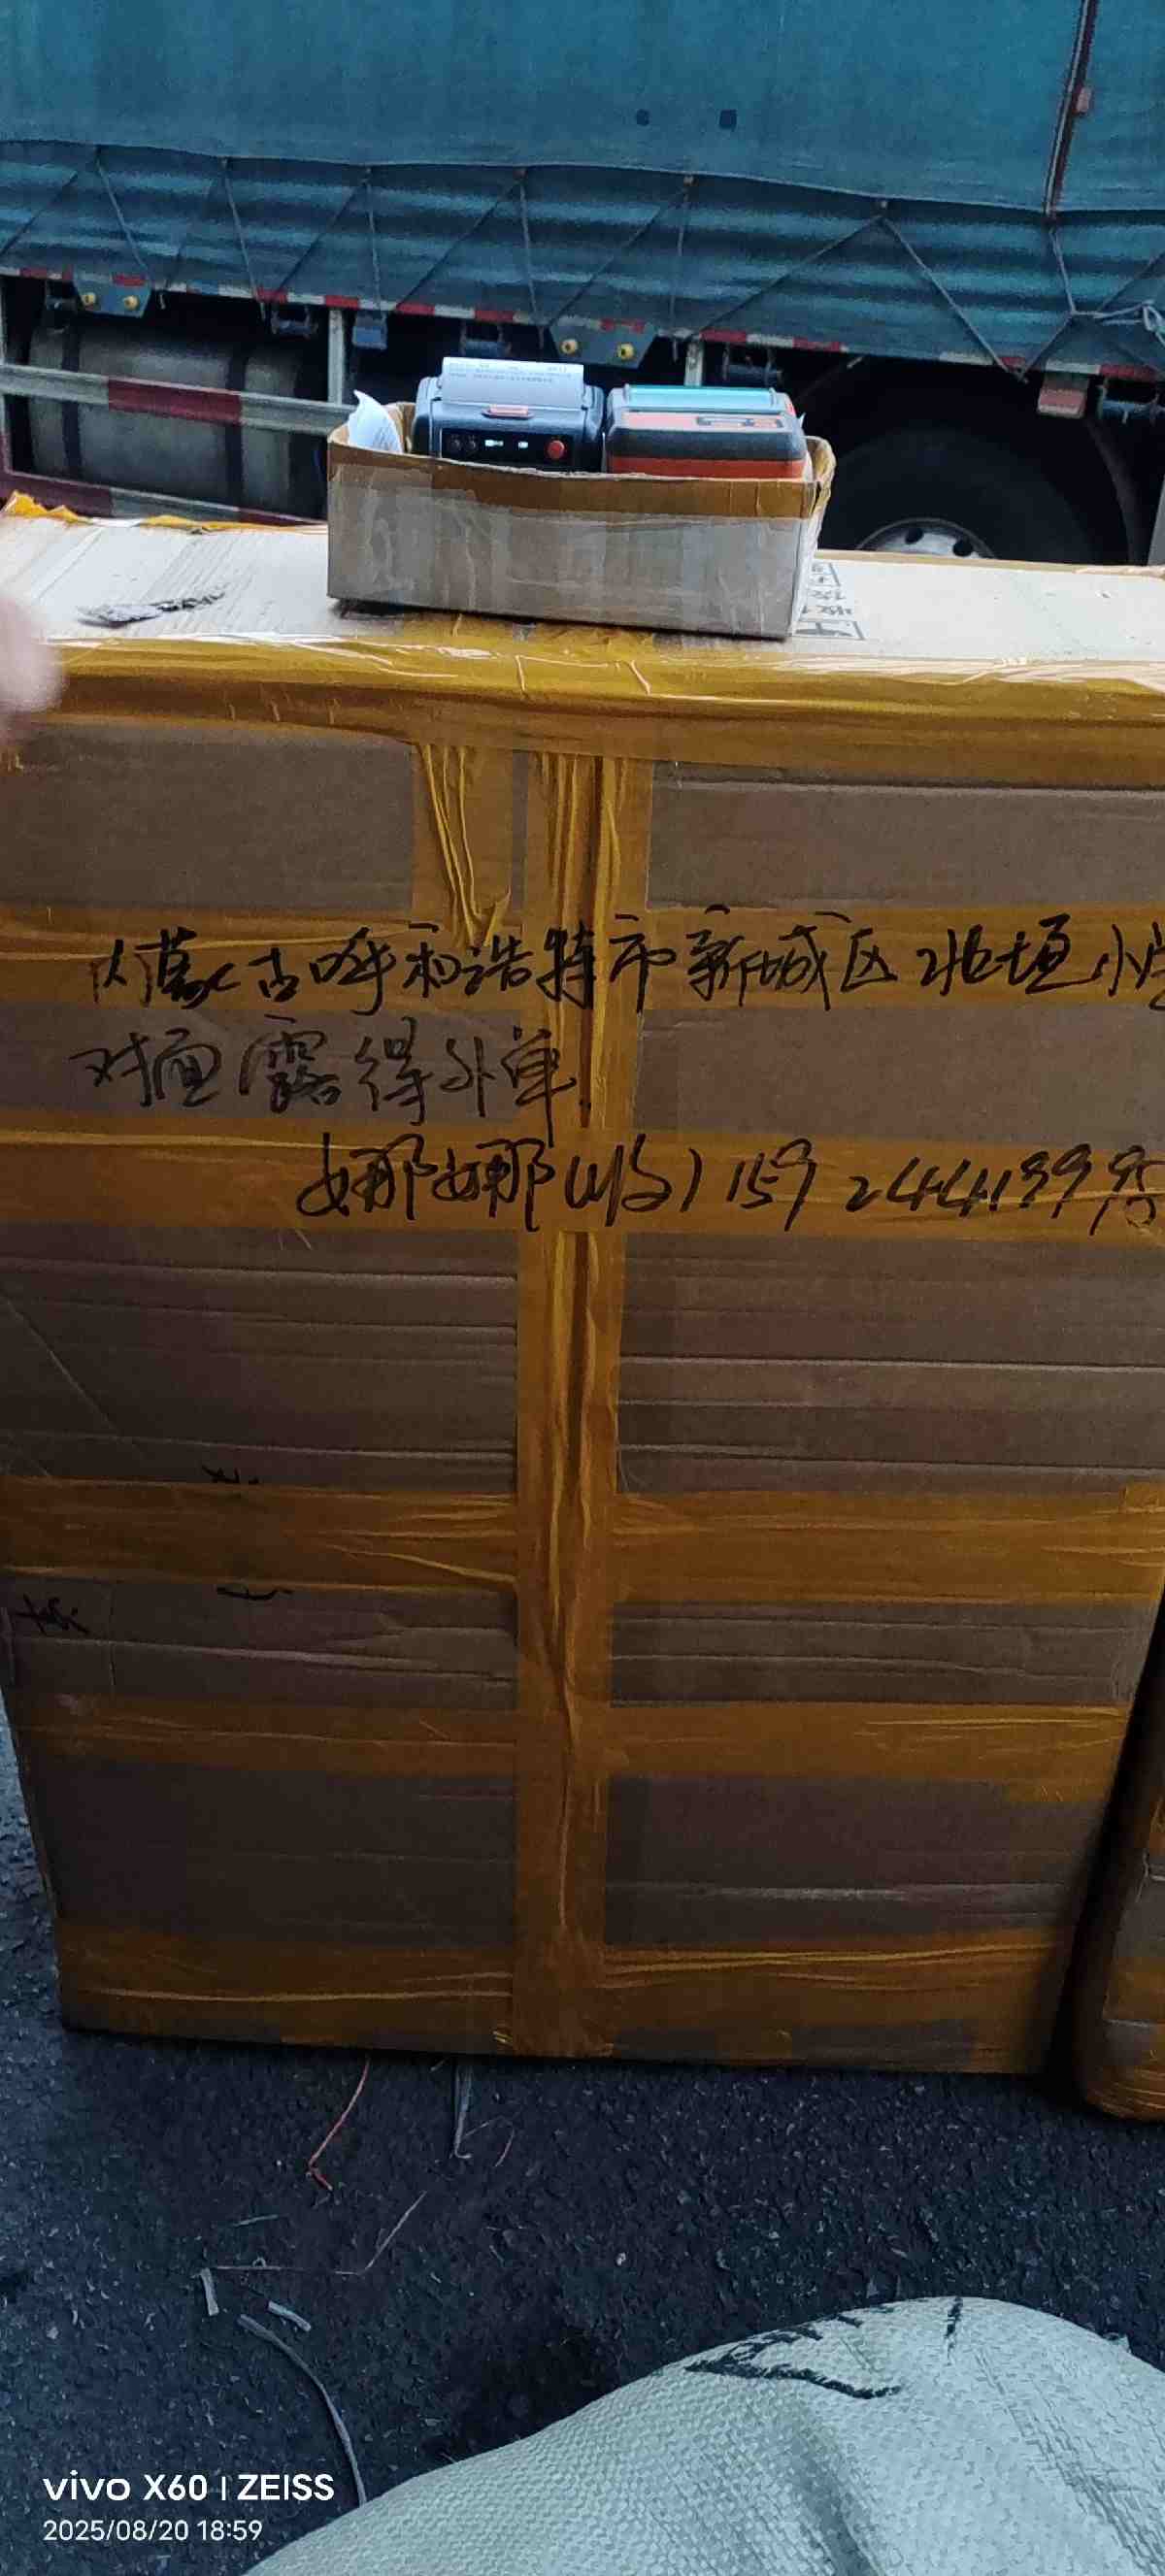 内蒙古呼和浩特市新城区北垣小
对面露得外单
娜娜(收) 159 2441399
vivo X60 | ZEISS
2025/08/20 18:59